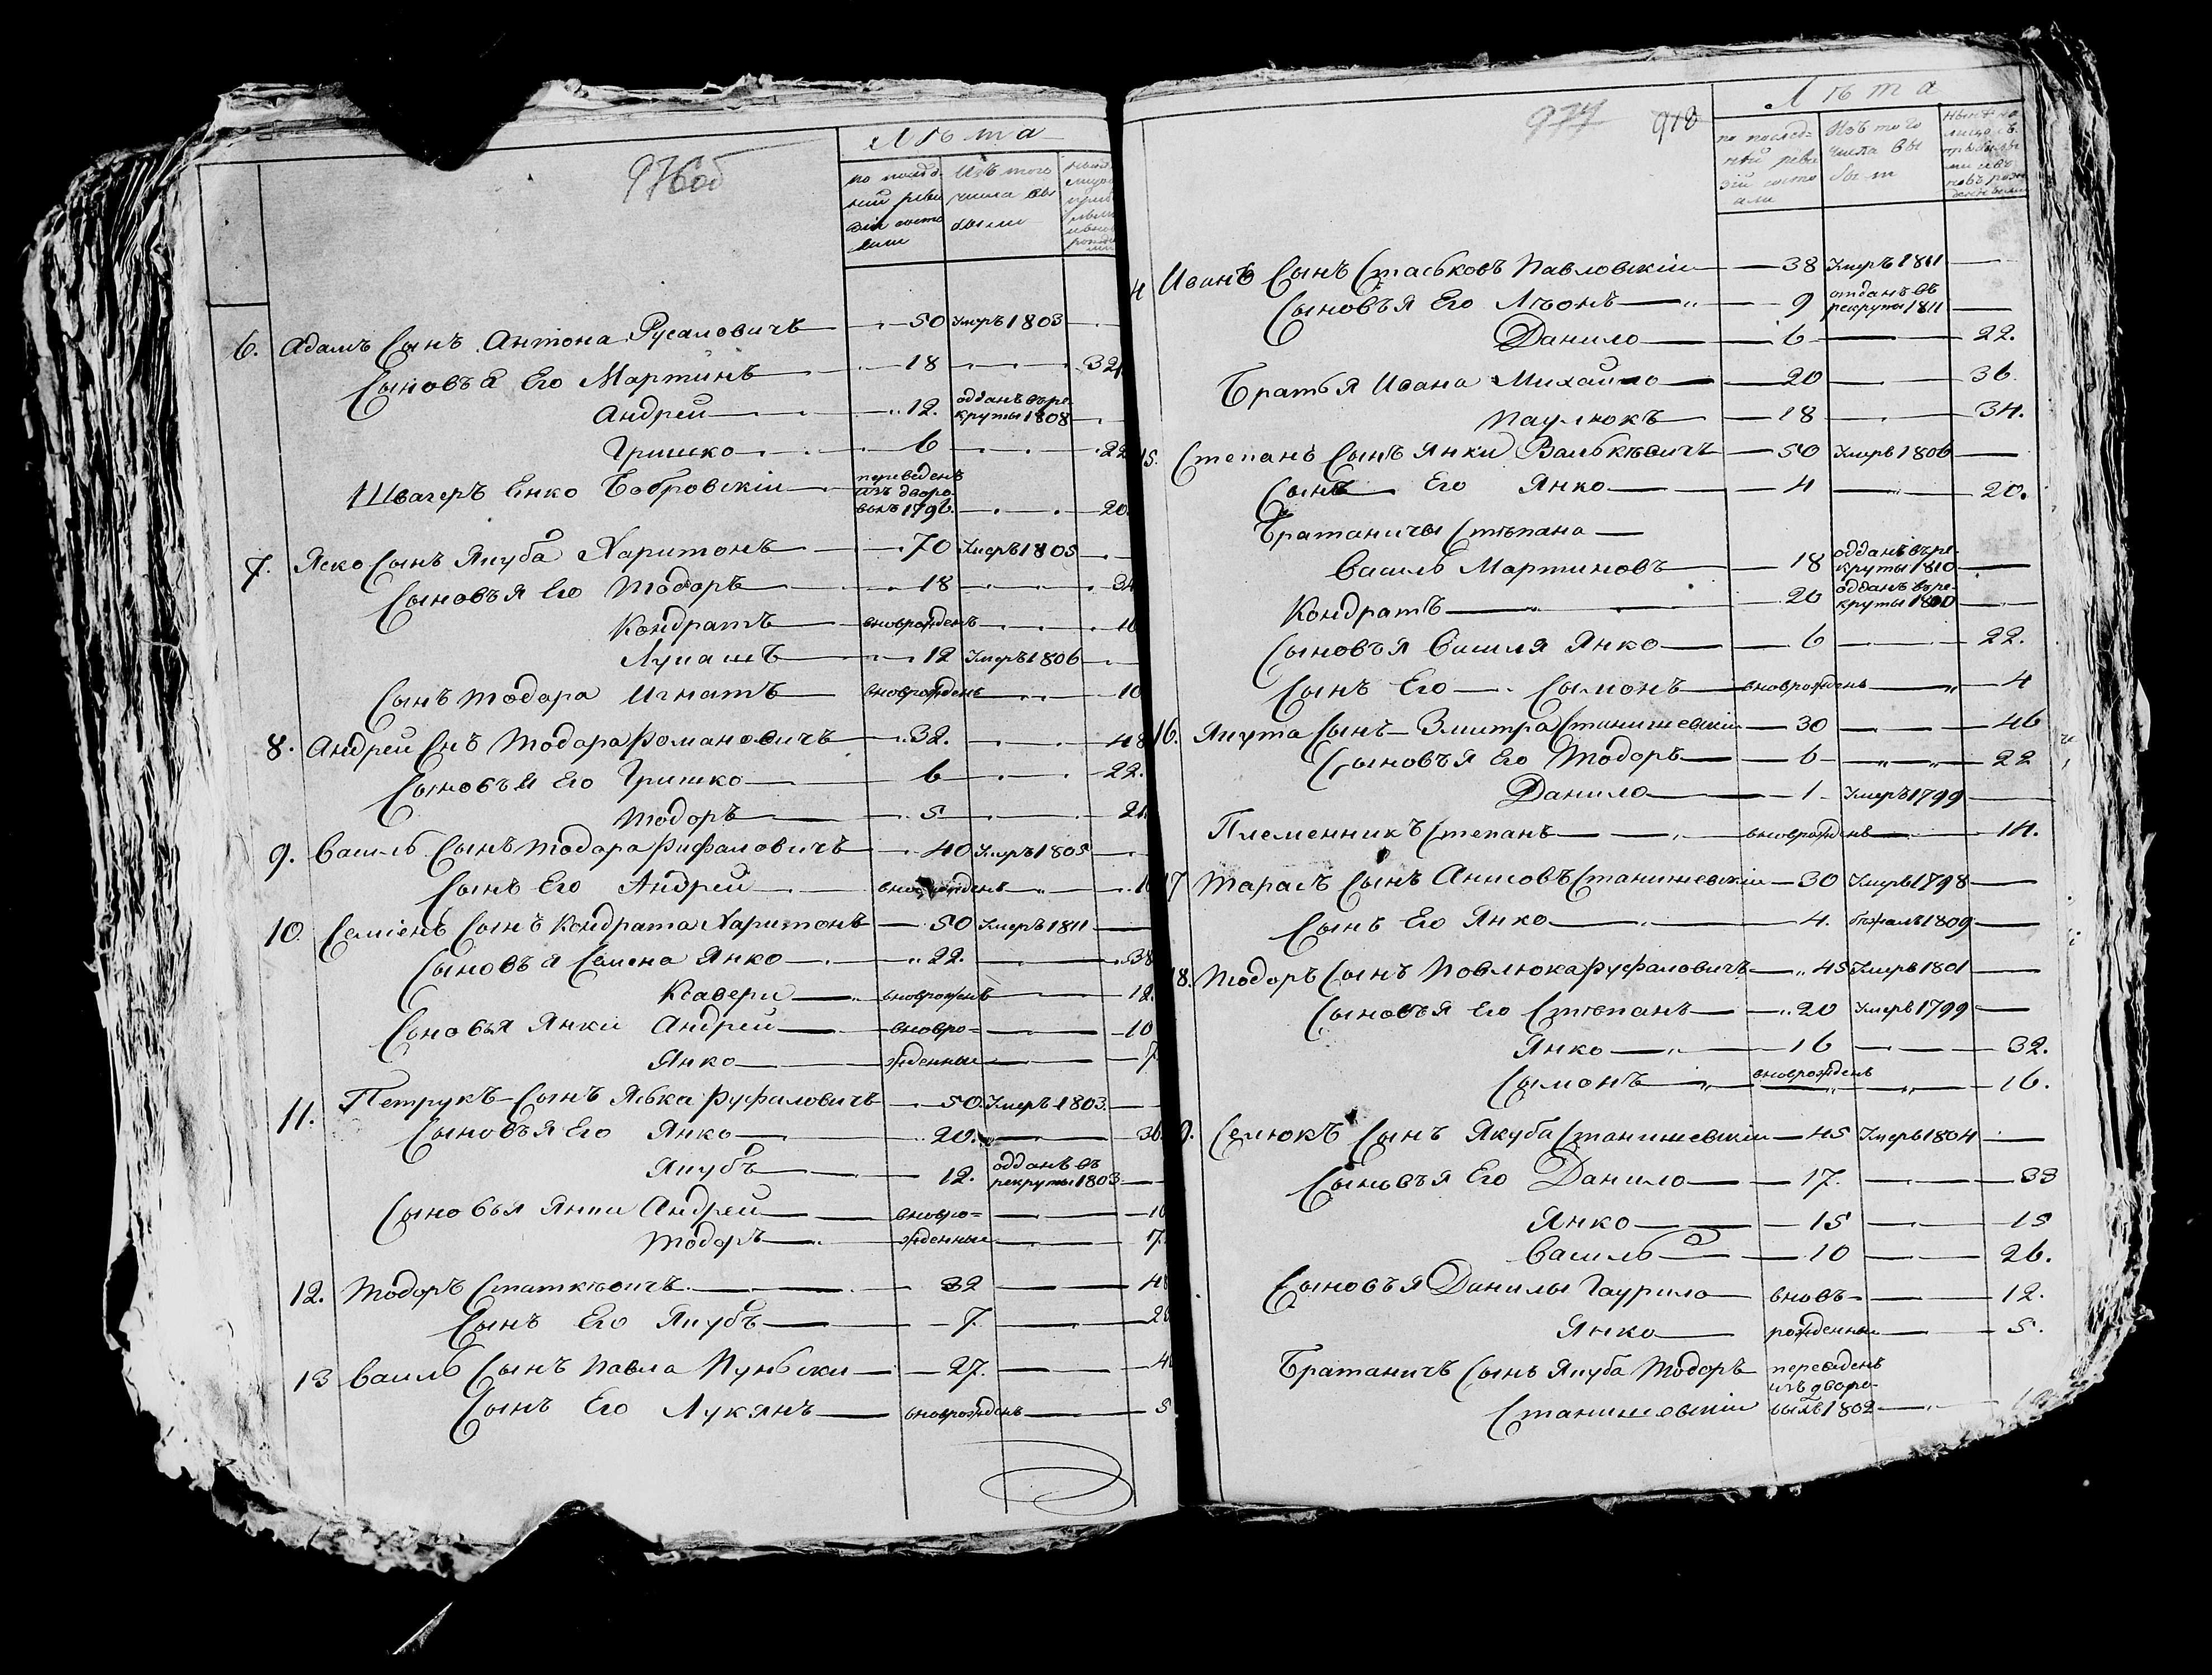 976об
Лѣта
по послѣд-
ней реви
зіи состо
яли
Изъ того
числа вы
были
6. Адамъ Сынъ Антона Русаловичъ 50 Умеръ 1803
Сыновья Его Мартинъ 18 32
Андрей 12. отданъ въ ре-
круты 1808
Гришко 6 22
Швагеръ Енко Бобровскій переведенъ
изъ дворо-
выхъ 1796. 20.
7. Яско Сынъ Якуба Харитонъ 70 Умеръ 1805
Сыновья Его Тодоръ 18 34
Кондратъ вноврожденъ 16
Лукашъ 12 Умеръ 1806
Сынъ Тодора Игнатъ вноврожденъ 10
8. Андрей Снъ Тодора Романовичъ 32. 48
Сыновья Его Гришко 6 22.
Тодоръ 5 21.
9. Василь Сынъ Тодора Руфаловичъ 40 Умеръ 1805
Сынъ Его Андрей вноврожденъ
10. Семіенъ Сынъ Кондрата Харитонъ 50 Умеръ 1811
Сыновья Семена Янко 22. 38
Ксавери вноврожденъ 12.
Сыновья Янки Андрей вновро= 10
Янко жденные 7.
11. Петрукъ Сынъ Яська Руфаловичъ 50. Умеръ 1803.
Сыновья Его Янко 20. 36
Якубъ 12. отданъ въ
рекруты 1803
Сыновья Янки Андрей вновро= 10
Тодоръ жденные 7.
12. Тодоръ Статкѣвичъ 32 48
Сынъ Его Якубъ 7. 23
13 Василь Сынъ Павла Пуньски 27. 4
Сынъ Его Лукянъ вноврожденъ 5
977 978
Лѣта
по послѣд-
ней реви
зіи состо
яли
Изъ того
числа вы
были
Нынѣ на
лицо съ
прибылы
ми и въ
новь рож
денными
4 Иванъ Сынъ Стаськовъ Павловскій 38 Умеръ 1811
Сыновья Его Лѣонъ 9 отданъ въ
рекруты 1811
Данило 6 22.
Братья Ивана Михайло 20 36
Паулюкъ 18 34.
15. Степанъ Сынъ Янки Валькѣвичъ 50 Умеръ 1806
Сынъ Его Янко 4 20.
Братаничы Стѣпана
Василь Мартиновъ 18 отданъ въ ре-
круты 1810
Кондратъ 20 отданъ въ ре-
круты 1800
Сыновья Василя Янко 6 22.
Сынъ Его Сымонъ вноврожденъ 4
16. Якута Сынъ Змитра Станишевскій 30 46
Сыновья Его Тодоръ 6 22
Данило 1 Умеръ 1799
Племенникъ Степанъ вноврожденъ 14.
17 Тарасъ Сынъ Анисовъ Станишевскій 30 Умеръ 1798
Сынъ Его Янко 4. бѣжалъ 1809
18. Тодоръ Сынъ Повлюка Руфаловичъ 45 Умеръ 1801
Сыновья Его Стѣпанъ 20 Умеръ 1799
Янко 16 32.
Сымонъ вноврожденъ 16.
9. Селюкъ Сынъ Якуба Станишевскій 45 Умеръ 1804
Сыновья Его Данило 17. 33
Янко 15 15
Василь 10 26.
Сыновья Данилы Гаурило вновъ- 12.
Янко рожденные 5.
Братаничъ Сынъ Якуба Тодоръ переведенъ
изъ дворо-
Станишевскій выхъ 1802